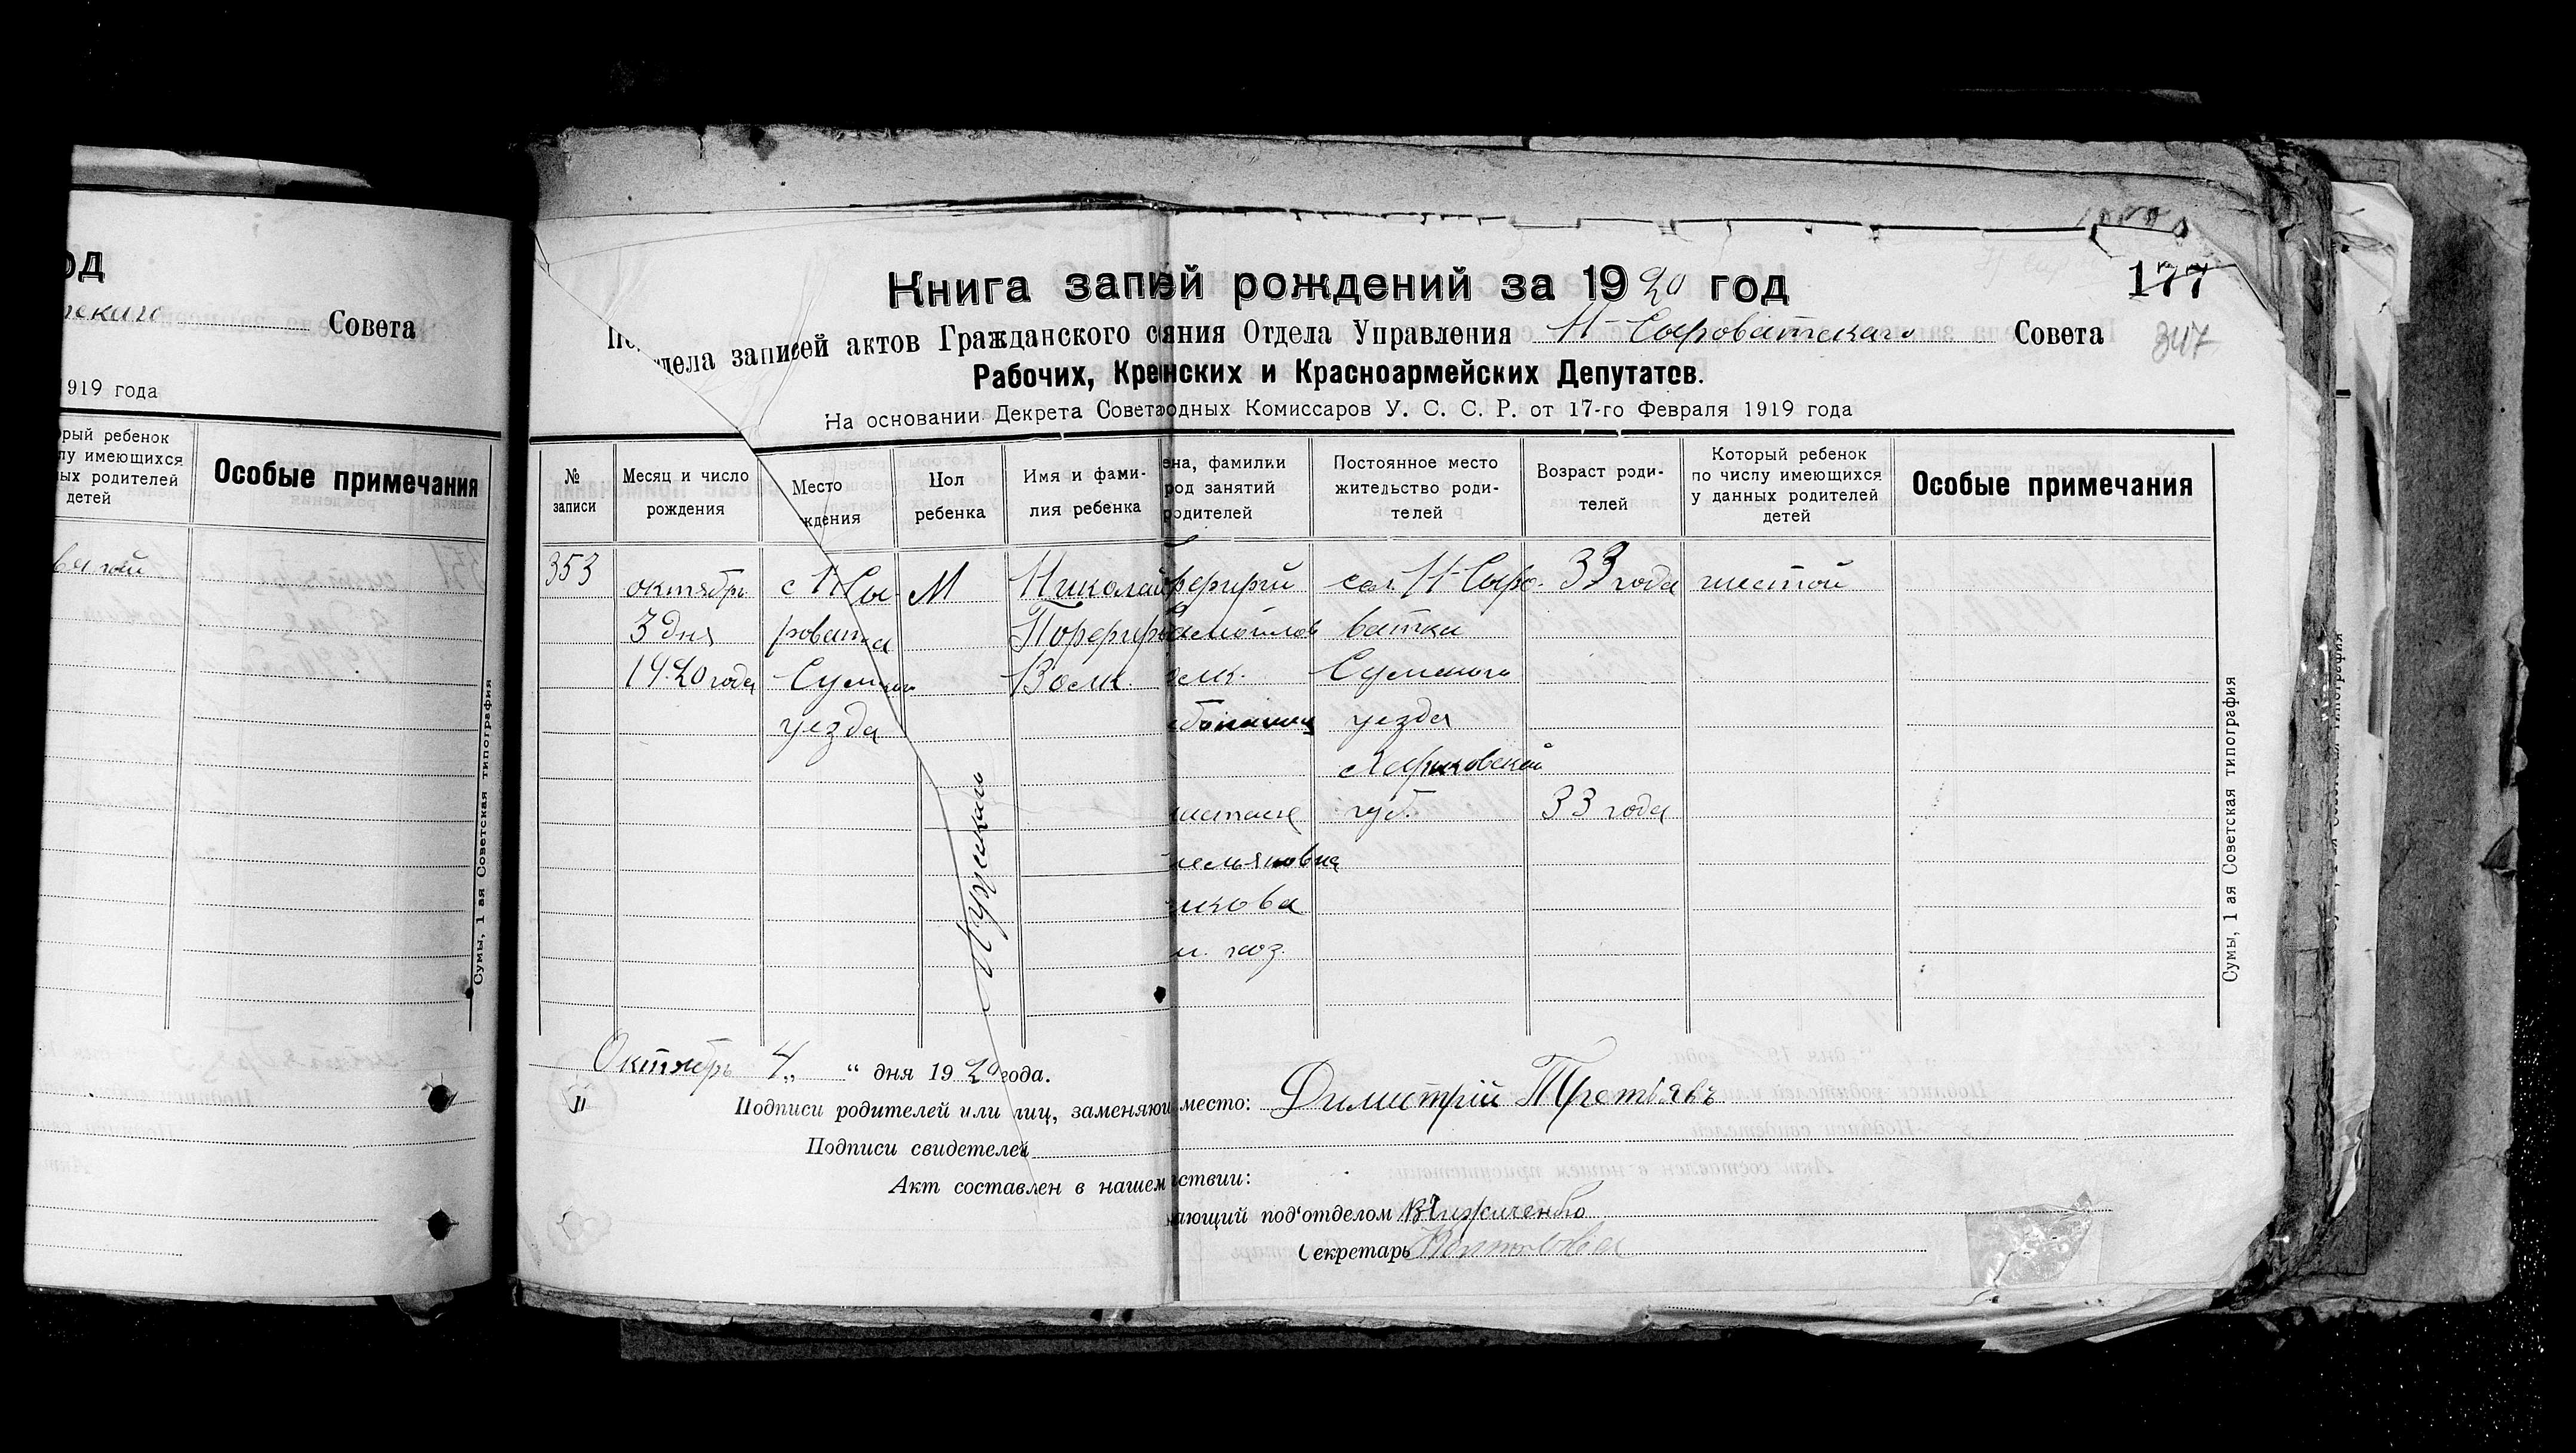 од
Совета
1919 года
ребенок
имеющихся
родителей
детей
Особые примечания
Сумы, 1 ая Советская типография
177
347
Книга запи й рождений за 1920 год
дела записей актов Гражданского с яния Отдела Управления Н-Сыроватскаго Совета
Рабочих, Кре нских и Красноармейских Депутатов.
На основании Декрета Совета одных Комиссаров У. С. С. Р. от 17-го Февраля 1919 года
№ записи
Месяц и число рождения
Место ждения
Пол ребенка
Имя и фами- лия ребенка
ена, фамилии
род занятий
родителей
Постоянное место жительство роди- телей
Возраст роди- телей
Который ребенок по числу имеющихся у данных родителей детей
Особые примечания
353
октябрь
3 дня
1920 года
с Н Сы
роватка
Сумско
уезда
М
Мужскаго
Николай
Порфир
Волк.
рфирий
амойлов
олк.
сел. Н-Сыро-
ватки
Сумскаго
уезда
Харьковской
губ.
33 года
33 года
шестой
настасия
мельяновна
лкова
м. хоз.
Октябрь 4 „ “ дня 1920 года.
Подписи родителей или лиц, заменяющ место: Димитрій Третьякъ
Подписи свидетелей
Акт составлен в нашем тствии:
ающий под‘отделом
Секретарь
Сумы, 1 ая Советская типография